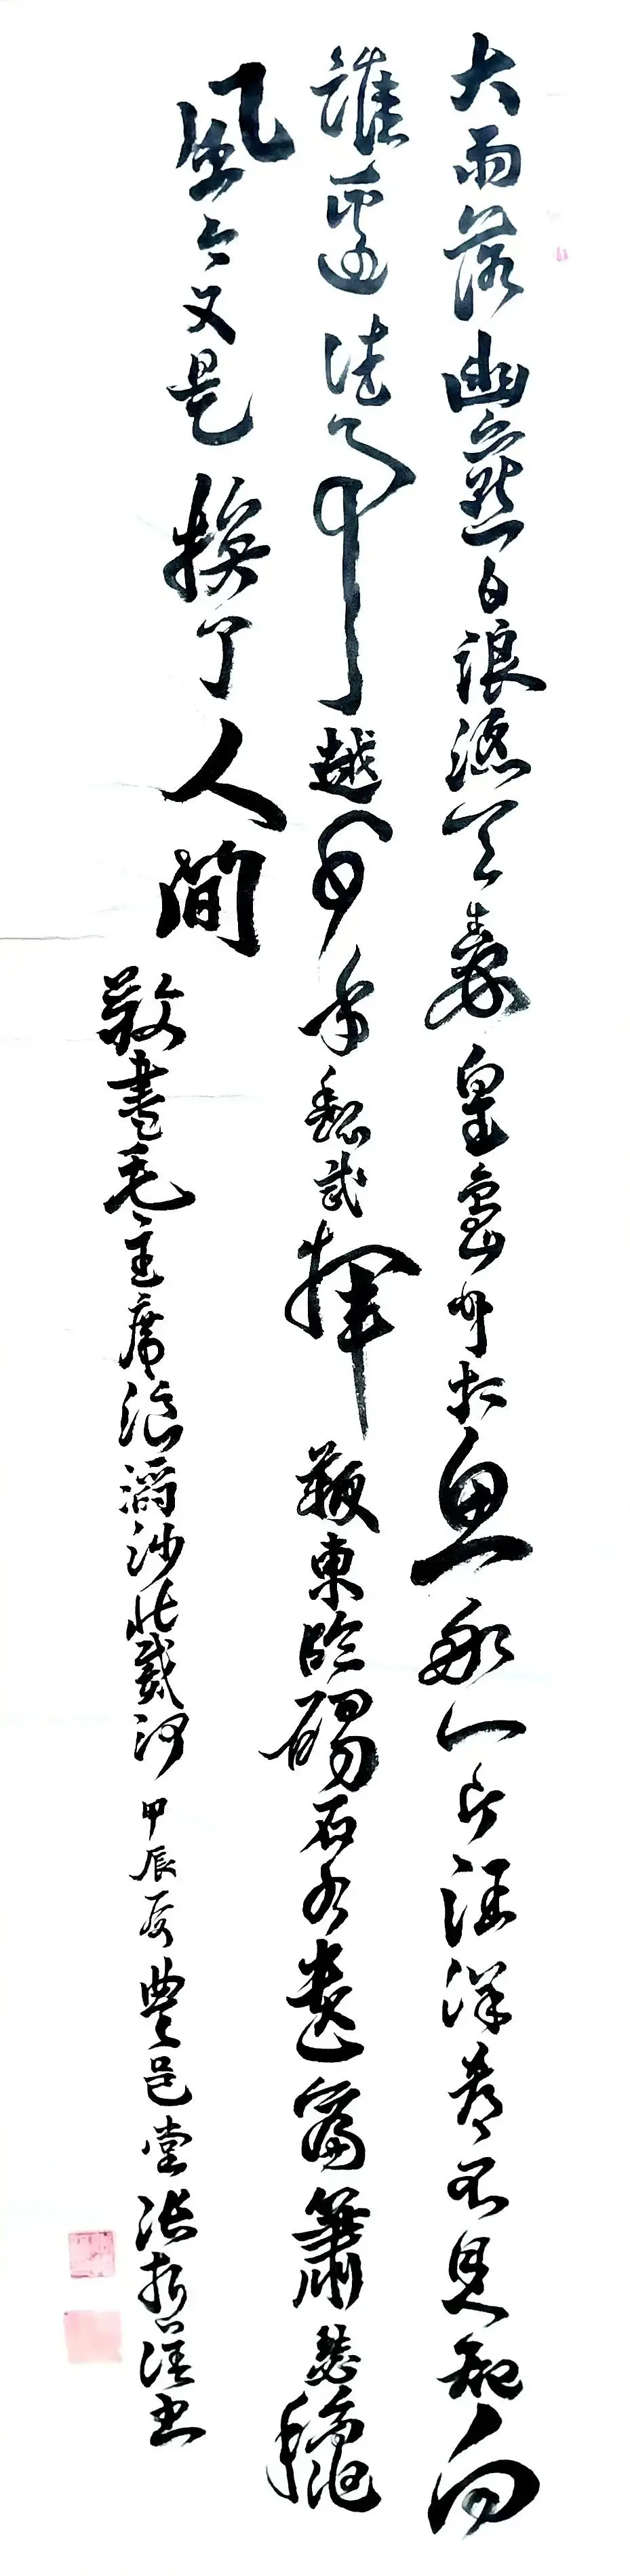 大雨落幽燕白浪滔天秦皇島外打魚船一片汪洋都不見知向
誰邊往事越千年魏武揮鞭東臨碣石有遺篇蕭瑟穐
風今又是換了人間
敬書毛主席浪淘沙北戴河甲辰夏豐邑堂張书